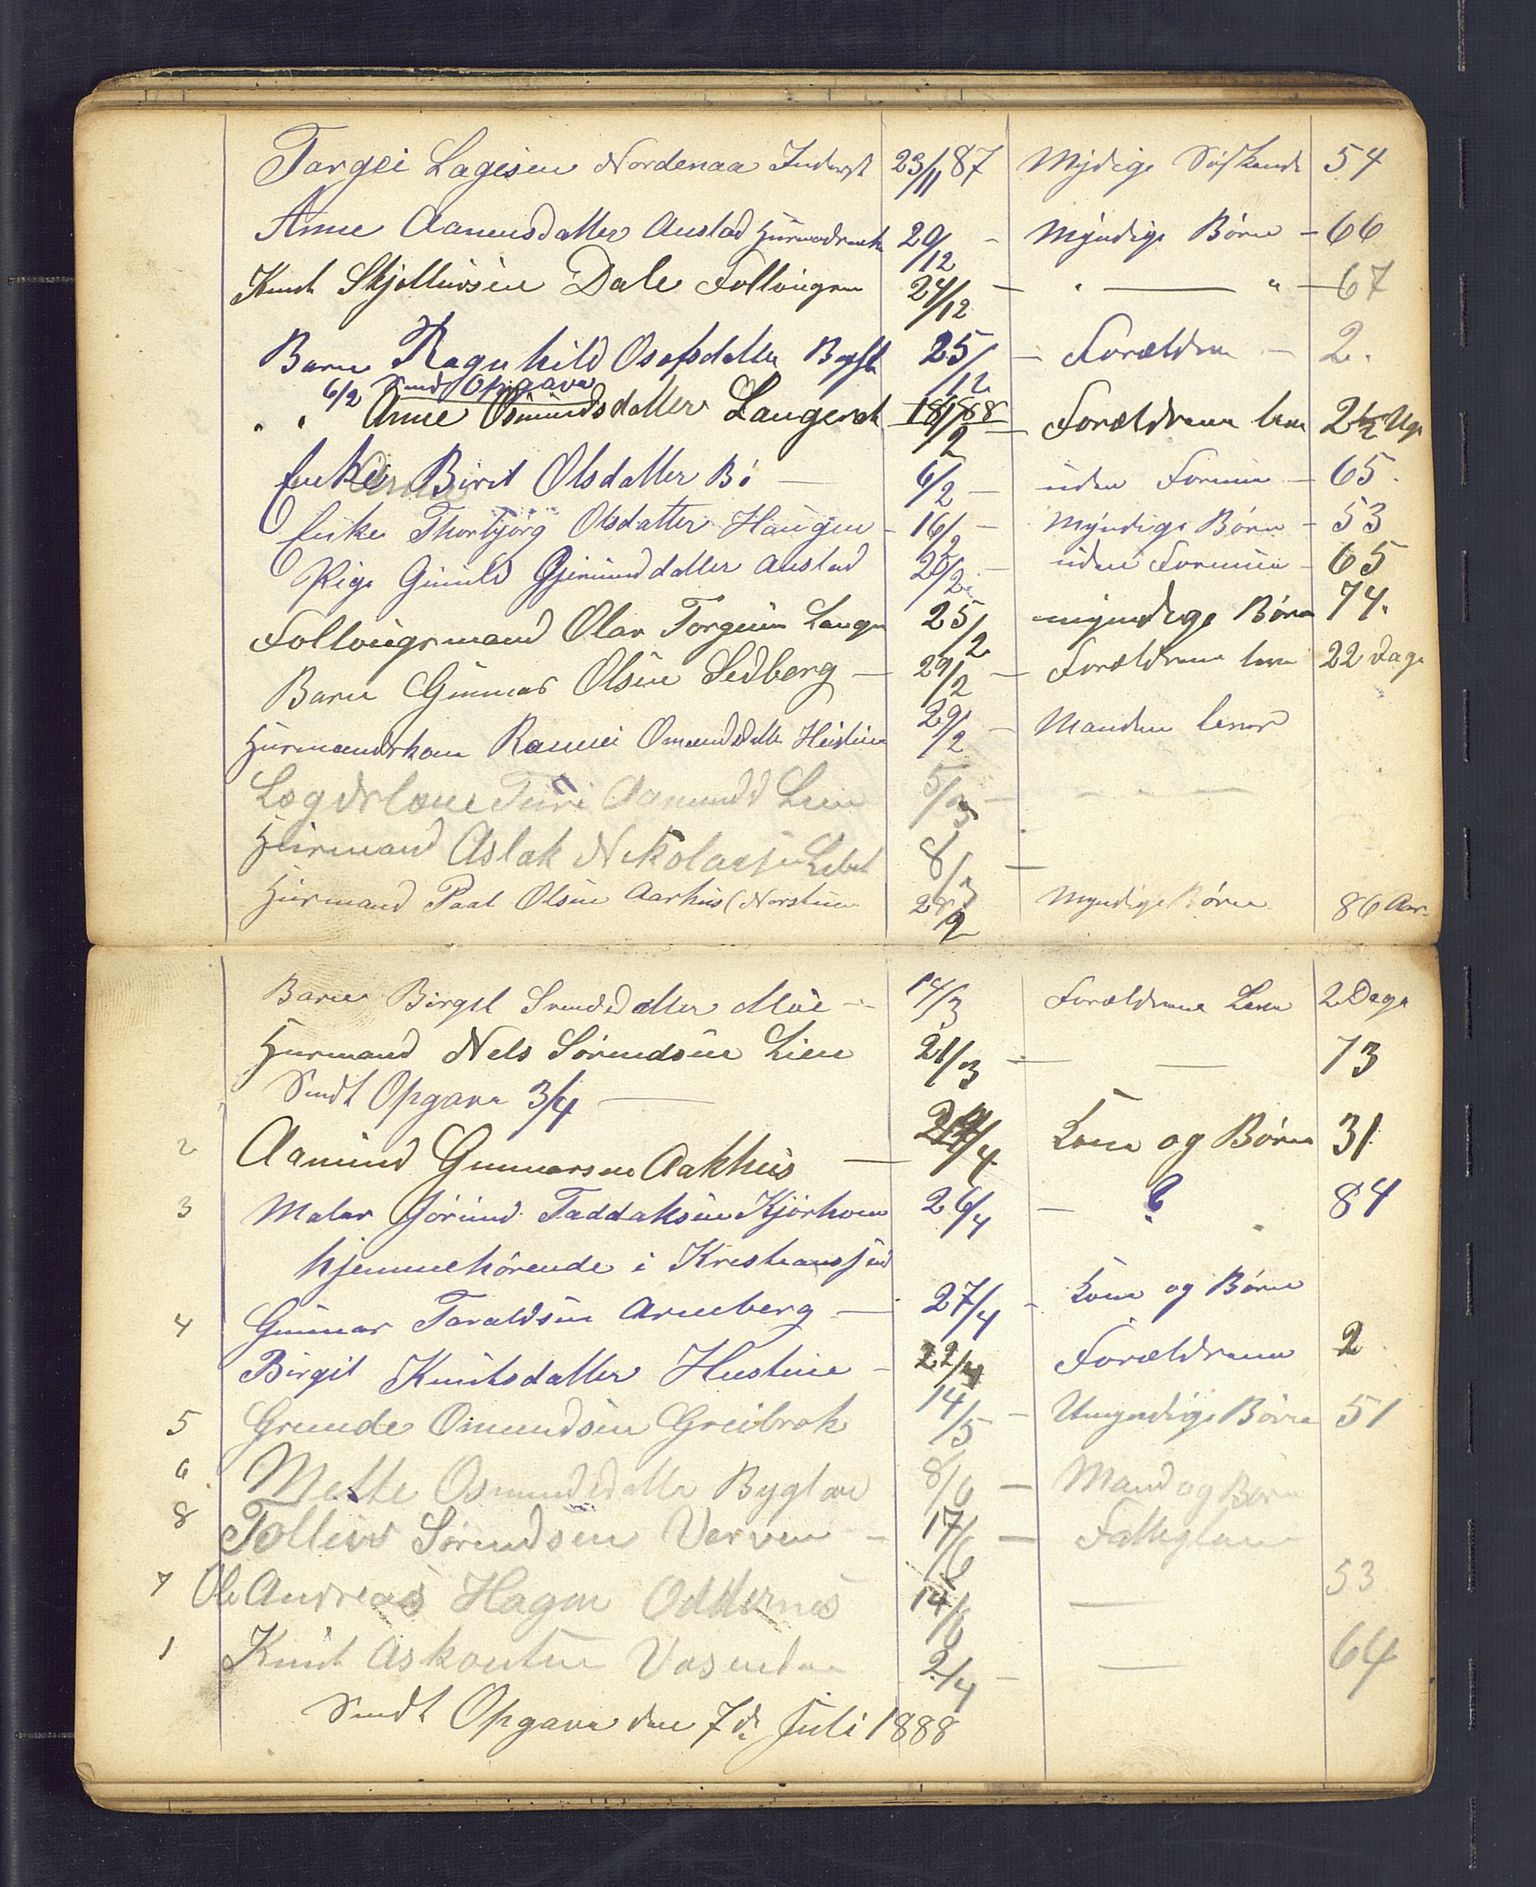 Targei Lagesen Nordenaa Inderst 23/11 87 Mydige Søskende 54
Anne Aanensdatter Austad Huusmdsenke 20/12 – Myndige Børn – 66
Knut Skjellevsen Dale Follaugen 24/12 – " — " – 67
Barn Ragnhild Osofsdatter 25/12 – Forældrene – 2.
6/2 Sendt Opgave
" " Anne Osmundsdatter Langerak 18/2 88 – Forældrene leve 2½ Uge
Enke Birit Olsdatter Bø – 6/2 – uden Formue – 65.
Enke Thorbjørg Olsdatter Haugen – 16/2 – Myndige Børn – 53
Pige Gunild Gjerunddatter Austad 20/2 – uden Formue – 65
Follougsmand Olav Torgeirsen 25/2 myndige Børn 74.
Barn Gunnar Olsen Sedberg – 29/2 – Forældrene leve 22 Dage
Huusmandskone Rannei Omundsdatter Heistein 29/2 – Manden lever
Lægdslem Turi Aamundsd Lien 5/3 – – – –
Huusmand Aslak Nikolaisen 8/3 –
Huusmand Paal Olsen Aarhus (Norstein 28/2 Myndige Børn 86 Aar
Barn Birgit Svendsdatter Moe – 14/3 Forældrene Leve 2 Dage
Huusmand Nels Sørendsen Lien 21/3 – — 73
Sendt Opgave 3/4 —
2 Aamund Gunnarsen Aakhus – 24/4 Kone og Børn 31
3 Maler Jørund Taddaksen Kjørhom 26/4 – ? 84
hjemmehørende i Kristianssund
4 Gunnar Taraldsen Arneberg – 27/4 – Kone og Børn
Birgit Knutsdatter Hustine – 22/4 Forældrene 2
5 Grunde Omundsen Greibrok 14/5 – Umyndige Børn 51
6 Mette Osmundsdatter Bygland 8/6 – Mand og Børn
8 Tollev Sørendsen Verven – 17/6 – Fattiglem
7 Ole Andreas Hagen Oddernes 14/6 — 53
1 Knut Askontsen Vasendan 2/4 – — 64
Sendt Opgave den 7de Juli 1888